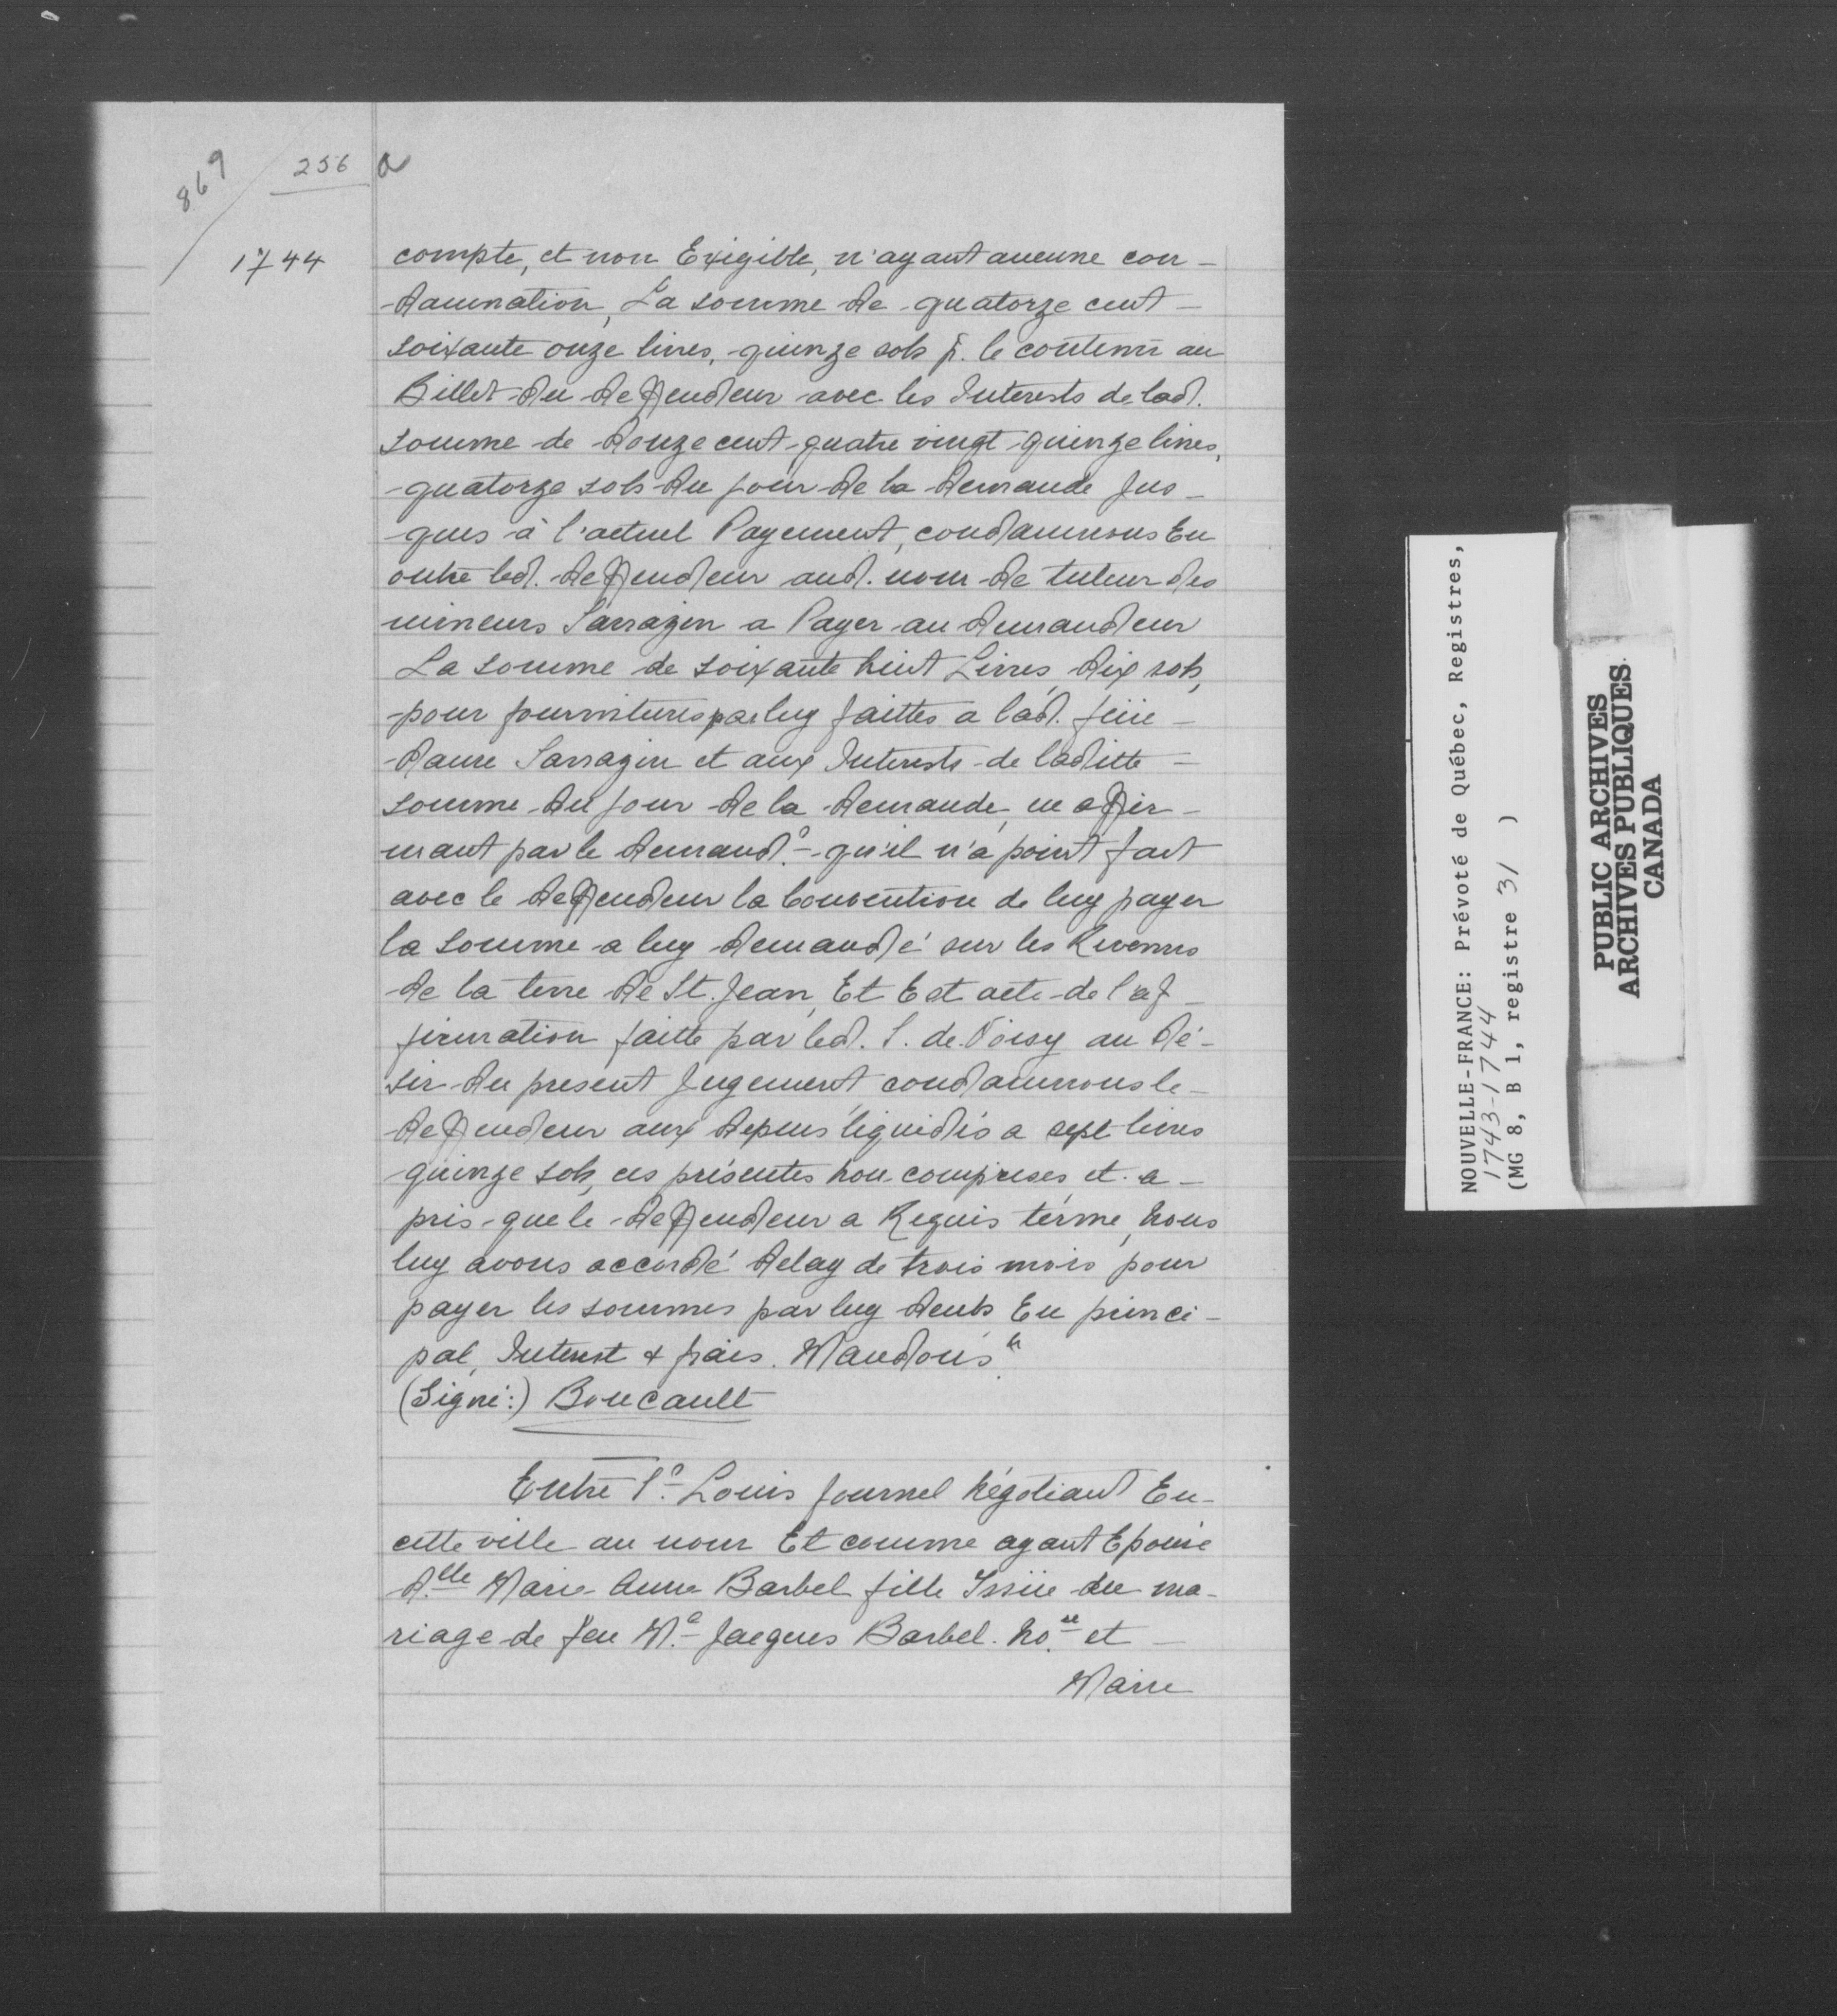 869
256 a
1744
compte, et non Exigible, n'ayant aucune con-
damnation, La somme de quatorze cent
soixante onze livres, quinze sols p. le contenu au
Billet du deffendeur avec les Interests de lad.
somme de douze cent quatre vingt quinze livres,
quatorze sols du jour de la demande Jus-
ques à l'actuel Payement, condamnons En
outre led. deffendeur aud. nom de tuteur des
mineurs Sarrazin a Payer au demandeur
La somme de soixante huit Livres, dix sols,
pour fournitures par luy faittes a lad. feüe
dame Sarrazin et aux Interests de laditte
somme du jour de la demande, en affir-
mant par le demand.r qu'il n'a point fait
avec le deffendeur la Convention de luy payer
la somme a luy demandé sur les Revenus
de la terre de St. Jean, Et Est acte de l'af-
firmation faitte par led. S. de Voisy au dé-
sir du present Jugement, condamnons le
deffendeur aux depens liquidés a sept livres
quinze sols, ces présentes non comprises, et a-
près que le deffendeur a Requis terme, Nous
luy avons accordé delay de trois mois pour
payer les sommes par luy deubs En princi-
pal, Interest & frais. Mandons &
(Signé:) Boucault
Entre S.r Louis fournel Négotiant En
cette ville au nom Et comme ayant Epousé
d.lle Marie-Anne Barbel fille Issüe du ma-
riage de feu M.e Jacques Barbel. No.re et
Marie
NOUVELLE-FRANCE: Prévoté de Québec, Registres,
1743-1744
(MG 8, B 1, registre 31 )
PUBLIC ARCHIVES
ARCHIVES PUBLIQUES
CANADA